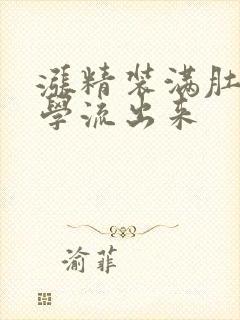 漲精装满肚
學流出来
渝菲